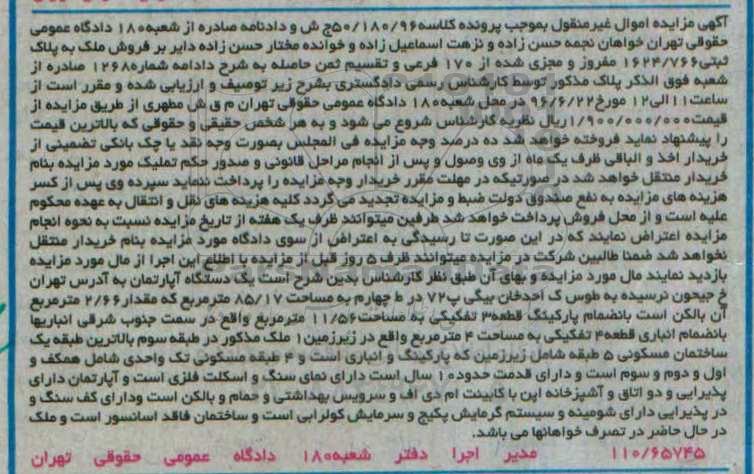 آگهی مزایده اموال غیرمنقول بموجب پرونده کلاسه۵۰/۱۸۰/۹۶ج ش و دادنامه صادره از شعبه۱۸۰ دادگاه عمومی
حقوقی تهران خواهان نجمه حسن زاده و نزهت اسماعیل زاده و خوانده مختار حسن زاده دایر بر فروش ملک به پلاک
ثبتی۱۶۲۴/۷۶۶ مفروز و مجزی شده از ۱۷۰ فرعی و تقسیم ثمن حاصله به شرح دادامه شماره۱۲۶۸ صادره از
شعبه فوق الذکر پلاک مذکور توسط کارشناس رسمی دادگستری بشرح زیر توصیف و ارزیابی شده و مقرر است از
ساعت۱۱الی۱۲ مورخ۹۶/۶/۲۲ در محل شعبه۱۸۰ دادگاه عمومی حقوقی تهران م ق ش مطهری از طریق مزایده از
قیمت۱/۹۰۰/۰۰۰/۰۰۰ریال نظریه کارشناس شروع می شود و به هر شخص حقیقی و حقوقی که بالاترین قیمت
را پیشنهاد نماید فروخته خواهد شد ده درصد وجه مزایده فی المجلس بصورت وجه نقد یا چک بانکی تضمینی از
خریدار اخذ و الباقی ظرف یک ماه از وی وصول و پس از انجام مراحل قانونی و صدور حکم تملیک مورد مزایده بنام
خریدار منتقل خواهد شد در صورتیکه در مهلت مقرر خریدار وجه مزایده را پرداخت ننماید سپرده وی پس از کسر
هزینه های مزایده به نفع صندوق دولت ضبط و مزایده تجدید می گردد کلیه هزینه های نقل و انتقال به عهده محکوم
علیه است و از محل فروش پرداخت خواهد شد طرفین میتوانند ظرف یک هفته از تاریخ مزایده نسبت به نحوه انجام
مزایده اعتراض نمایند که در این صورت تا رسیدگی به اعتراض از سوی دادگاه مورد مزایده بنام خریدار منتقل
نخواهد شد ضمنا طالبین شرکت در مزایده میتوانند ظرف ۵ روز قبل از مزایده با اطلاع این اجرا از مال مورد مزایده
بازدید نمایند مال مورد مزایده و بهای آن طبق نظر کارشناس بدین شرح است یک دستگاه آپارتمان به آدرس تهران
خ جیحون نرسیده به طوس ک احدخان بیگی پ۷۲ در ط چهارم به مساحت ۸۵/۱۷ مترمربع که مقدار۲/۶۶ مترمربع
آن بالکن است بانضمام پارکینگ قطعه۳ تفکیکی به مساحت۱۱/۵۶ مترمربع واقع در سمت جنوب شرقی انباریها
بانضمام انباری قطعه۴ تفکیکی به مساحت ۴ مترمربع واقع در زیرزمین۱ ملک مذکور در طبقه سوم بالاترین طبقه یک
ساختمان مسکونی ۵ طبقه شامل زیرزمین که پارکینگ و انباری است و ۴ طبقه مسکونی تک واحدی شامل همکف و
اول و دوم و سوم است و دارای قدمت حدود۱۰ سال است دارای نمای سنگ و اسکلت فلزی است و آپارتمان دارای
پذیرایی و دو اتاق و آشپزخانه اپن با کابینت ام دی اف و سرویس بهداشتی و حمام و بالکن است ودارای کف سنگ و
در پذیرایی دارای شومینه و سیستم گرمایش پکیج و سرمایش کولرابی است و ساختمان فاقد اسانسور است و ملک
در حال حاضر در تصرف خواهانها می باشد.
۱۱۰/۶۵۷۴۵ مدیر اجرا دفتر شعبه۱۸۰ دادگاه عمومی حقوقی تهران